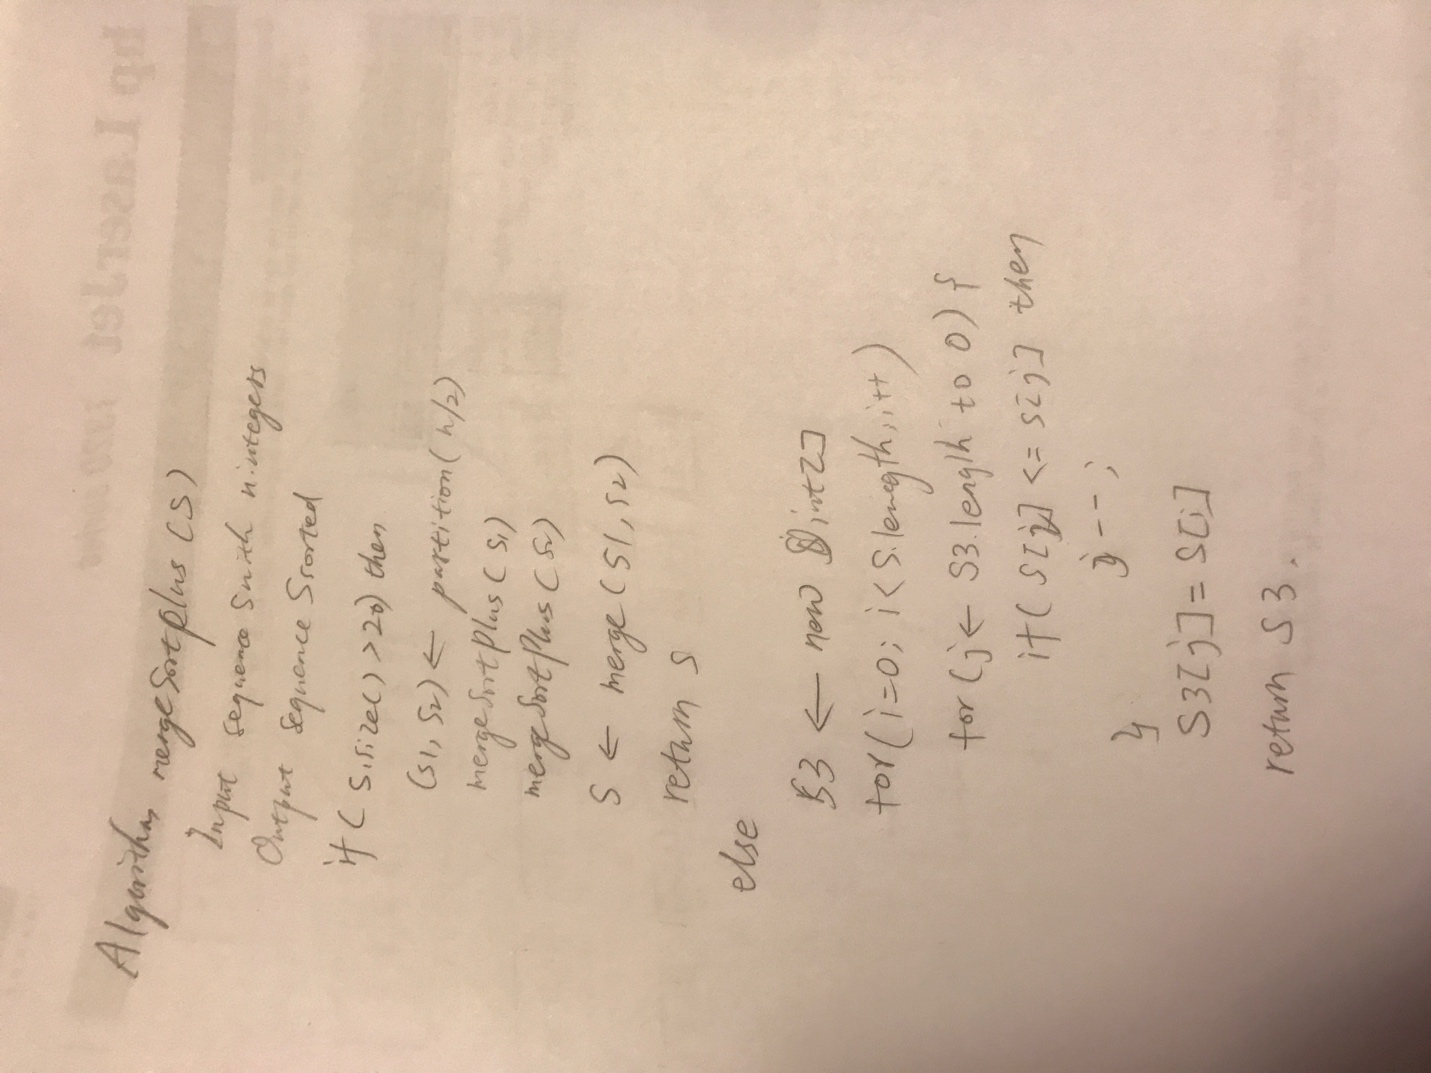 Algorithm mergeSortPlus (S)
Input sequence S with n integers
Output sequence S sorted
if ( S.size() >20) then
(S1, S2) ← partition( n/2)
mergeSortPlus ( S1)
mergeSortPlus ( S2)
S ← merge (S1, S2)
return S
else
S3 ← new int[]
for(i=0; i<S.length; i++)
for (j← S3.length to 0) {
if( S[j] <= S[j] then
j--;
}
S3[j] = S[i]
return S3.
hp LaserJet